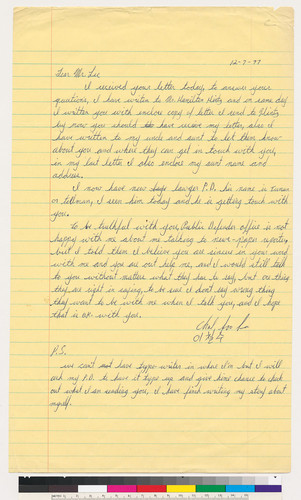 12-7-77
Dear Mr. Lee
I received your letter today, to answer your
question, I have writen to Mr. Hamilton Hintz and on same day
I written you with enclose copy of letter I send to Hintz
by now you should have receive my letter, also I
have written to my uncle and aunt to let them know
about you and where they can get in touch with you,
in my last letter I also enclose my aunt name and
address.
I now have new lawyer P.D. his name is
or tellman, I seen him today and he is getting touch with
you.
to be truthful with you, Public Defender office is not
happy with me about me talking to news-paper reporter,
but I told them I believe you are sincere in your word
with me and you are out help me, and I would still talk
to you without matters what they has to say, but one thing
they are right in saying, to be sure I don't say wrong thing
they want to be with me when I tell you, and I hope
that is o.k. with you.
Chol Soo Lee
이철수
P.S.
we can't have type writer in where I'm but I will
ask my P.D. to have it type up and give him chance to check
out what I am sending you, I have finish writing my story about
myself.